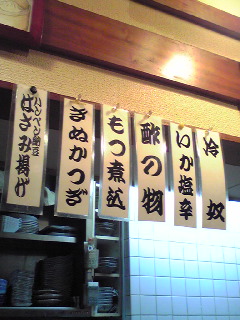 冷奴
いか塩辛
酢の物
もつ煮込
きぬかつぎ
ハンペン納豆
はさみ揚げ